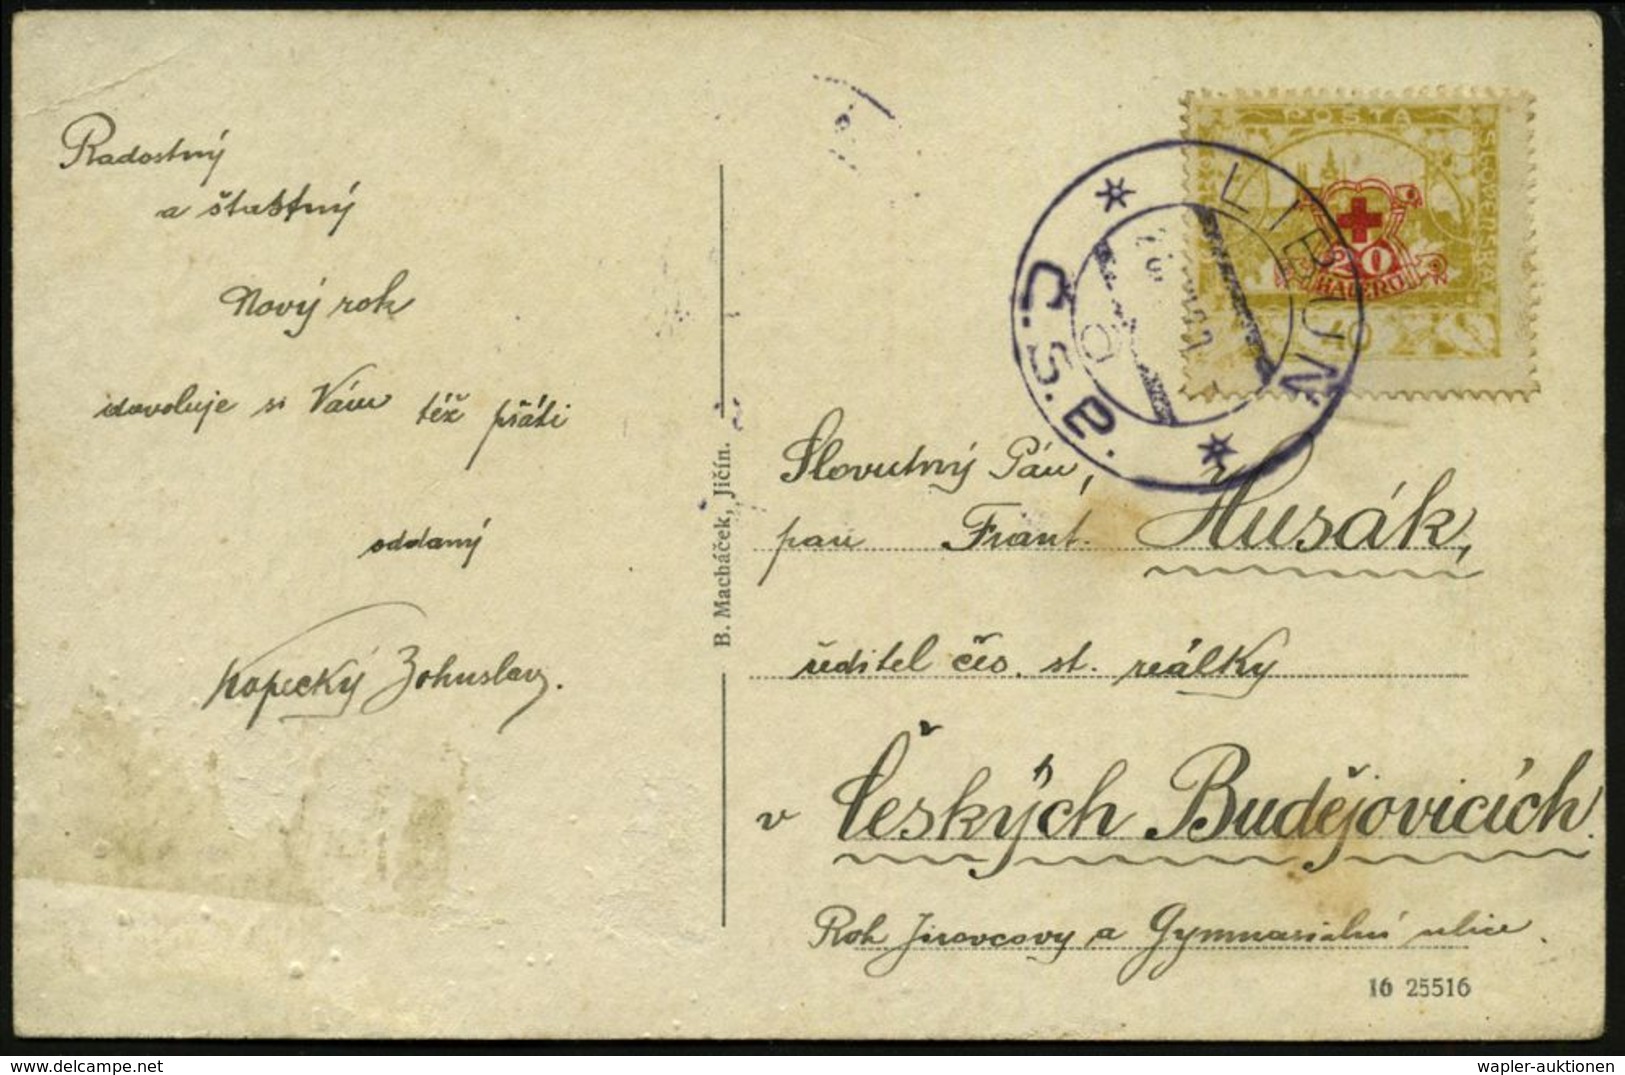 Radostný
a šťastný
Nový rok
dovoluje si Vám též přáti
oddaný
Kopecký Bohuslav.
B. Macháček, Jičín.
POŠTA
SLOVENSKÁ
20
HALÉŘŮ
40
LIBUŇ
Č.S.P.
Slovutný Pán,
pan Frant. Husák,
ředitel čes. st. reálky
v Českých Budějovicích.
Roh Jirovcovy a Gymnasiální ulice.
16 25516
wapler-auktionen